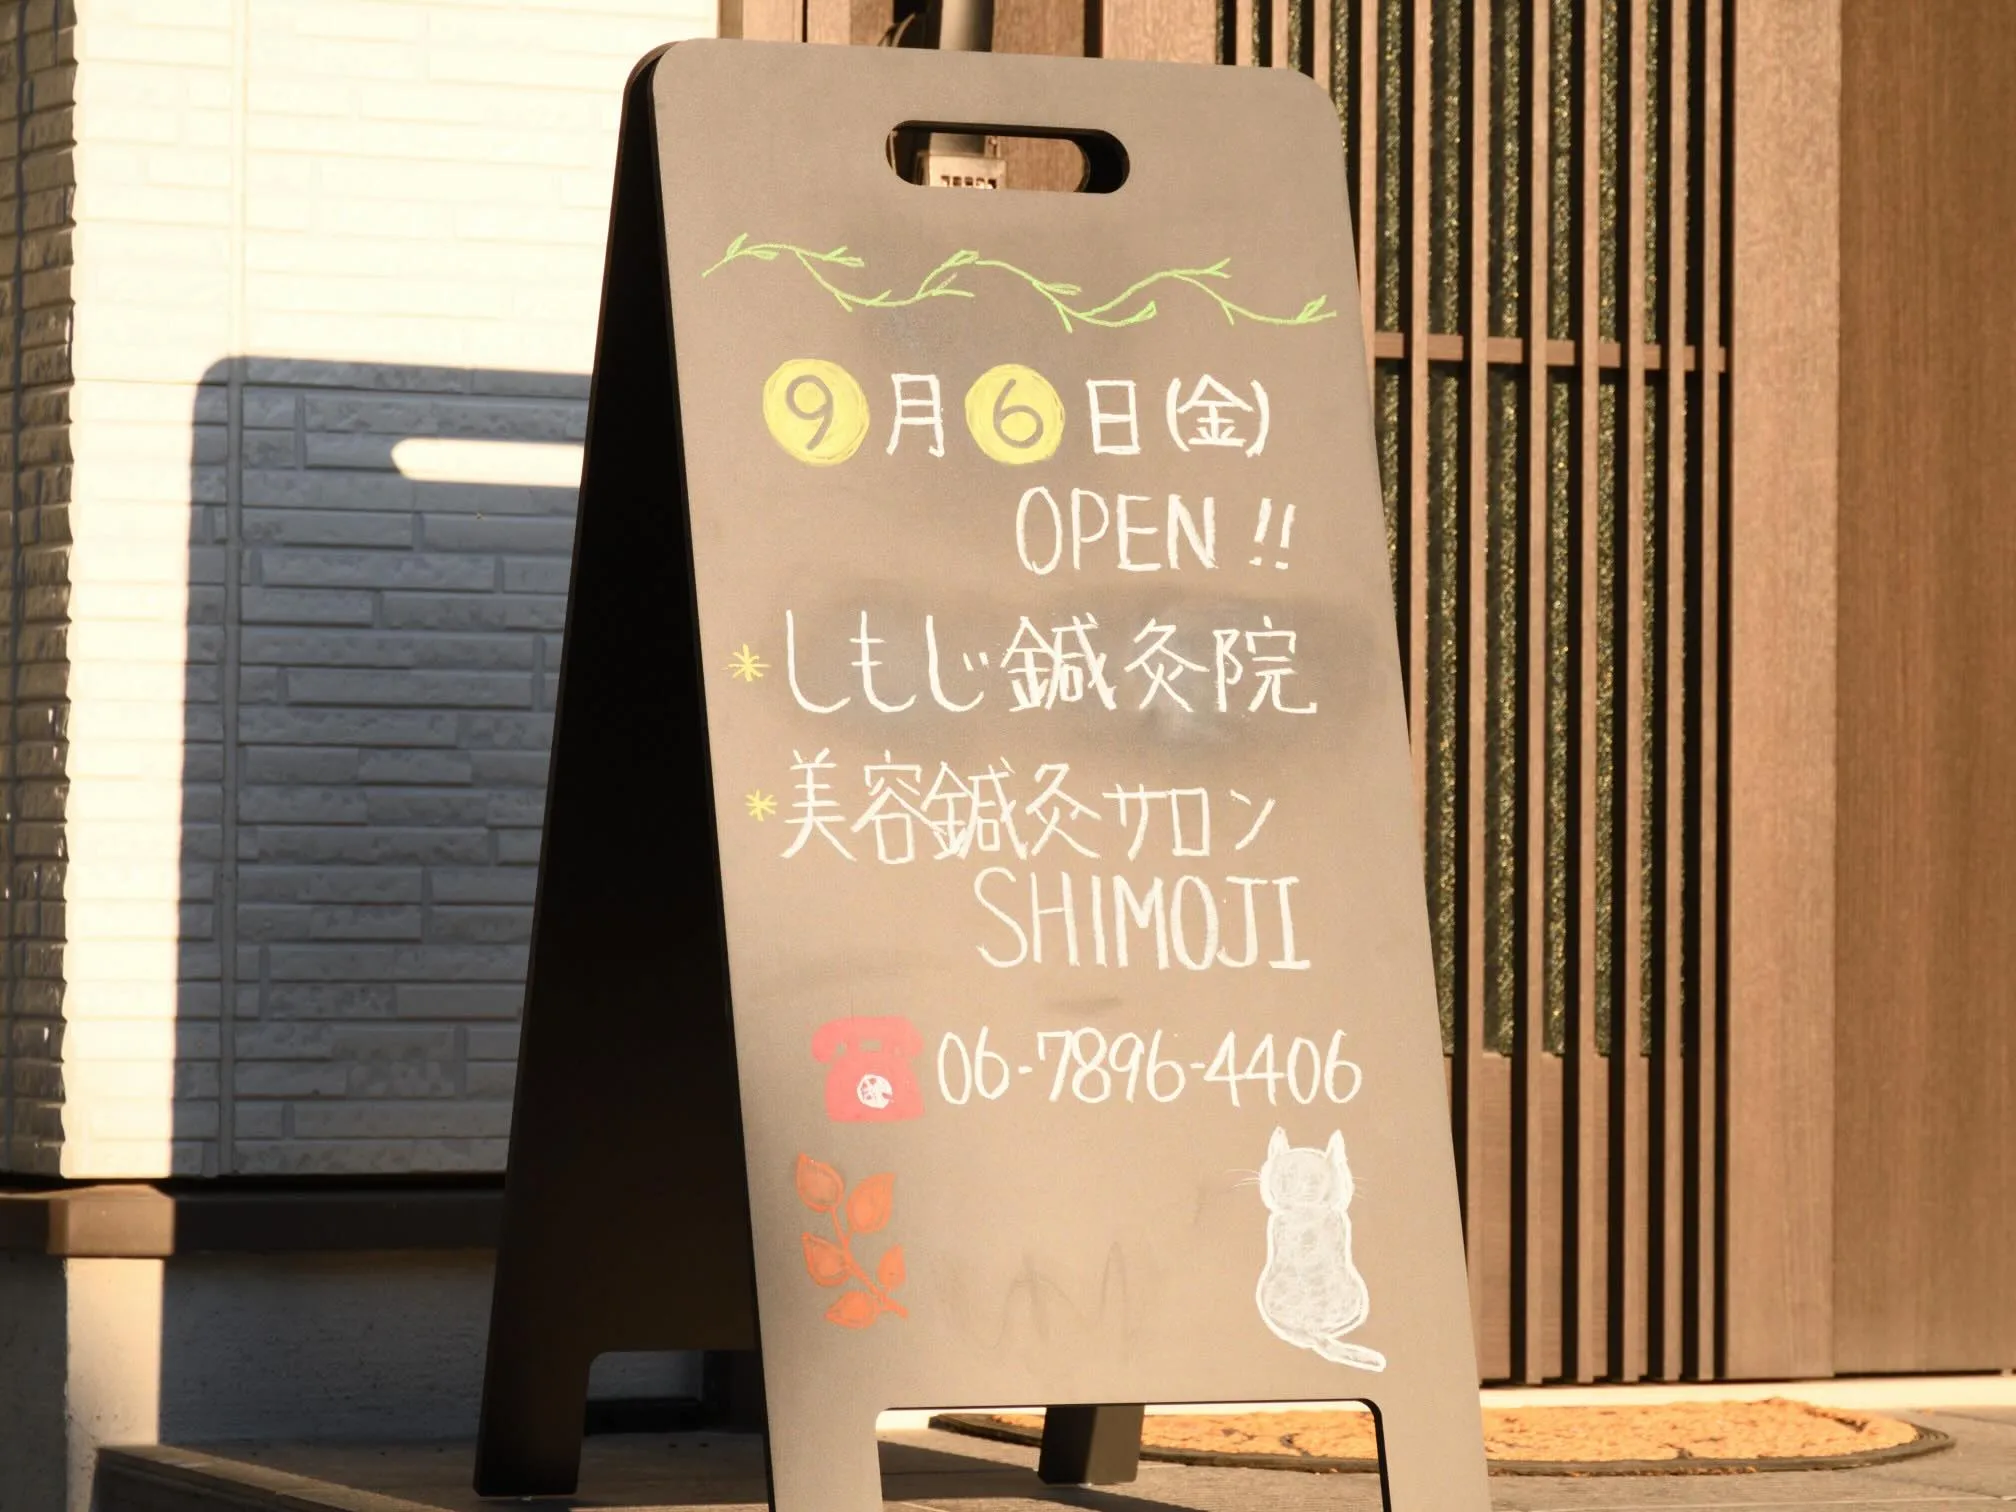 9月6日(金)
OPEN!!
*しもじ鍼灸院
*美容鍼灸サロン
SHIMOJI
06-7896-4406